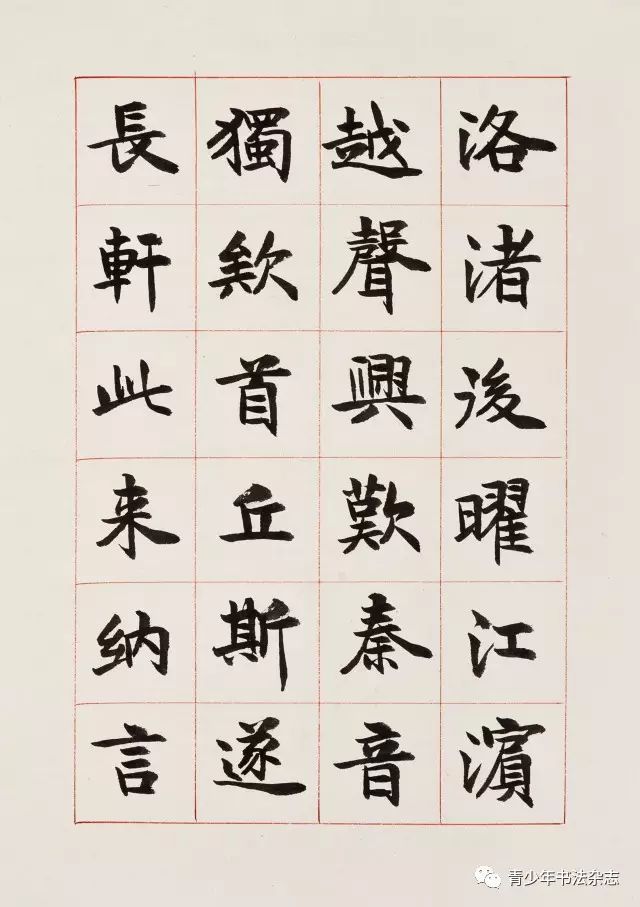 洛渚後曜江濱
越聲興歎秦音
獨欸首丘斯遂
長軒此来纳言
青少年书法杂志